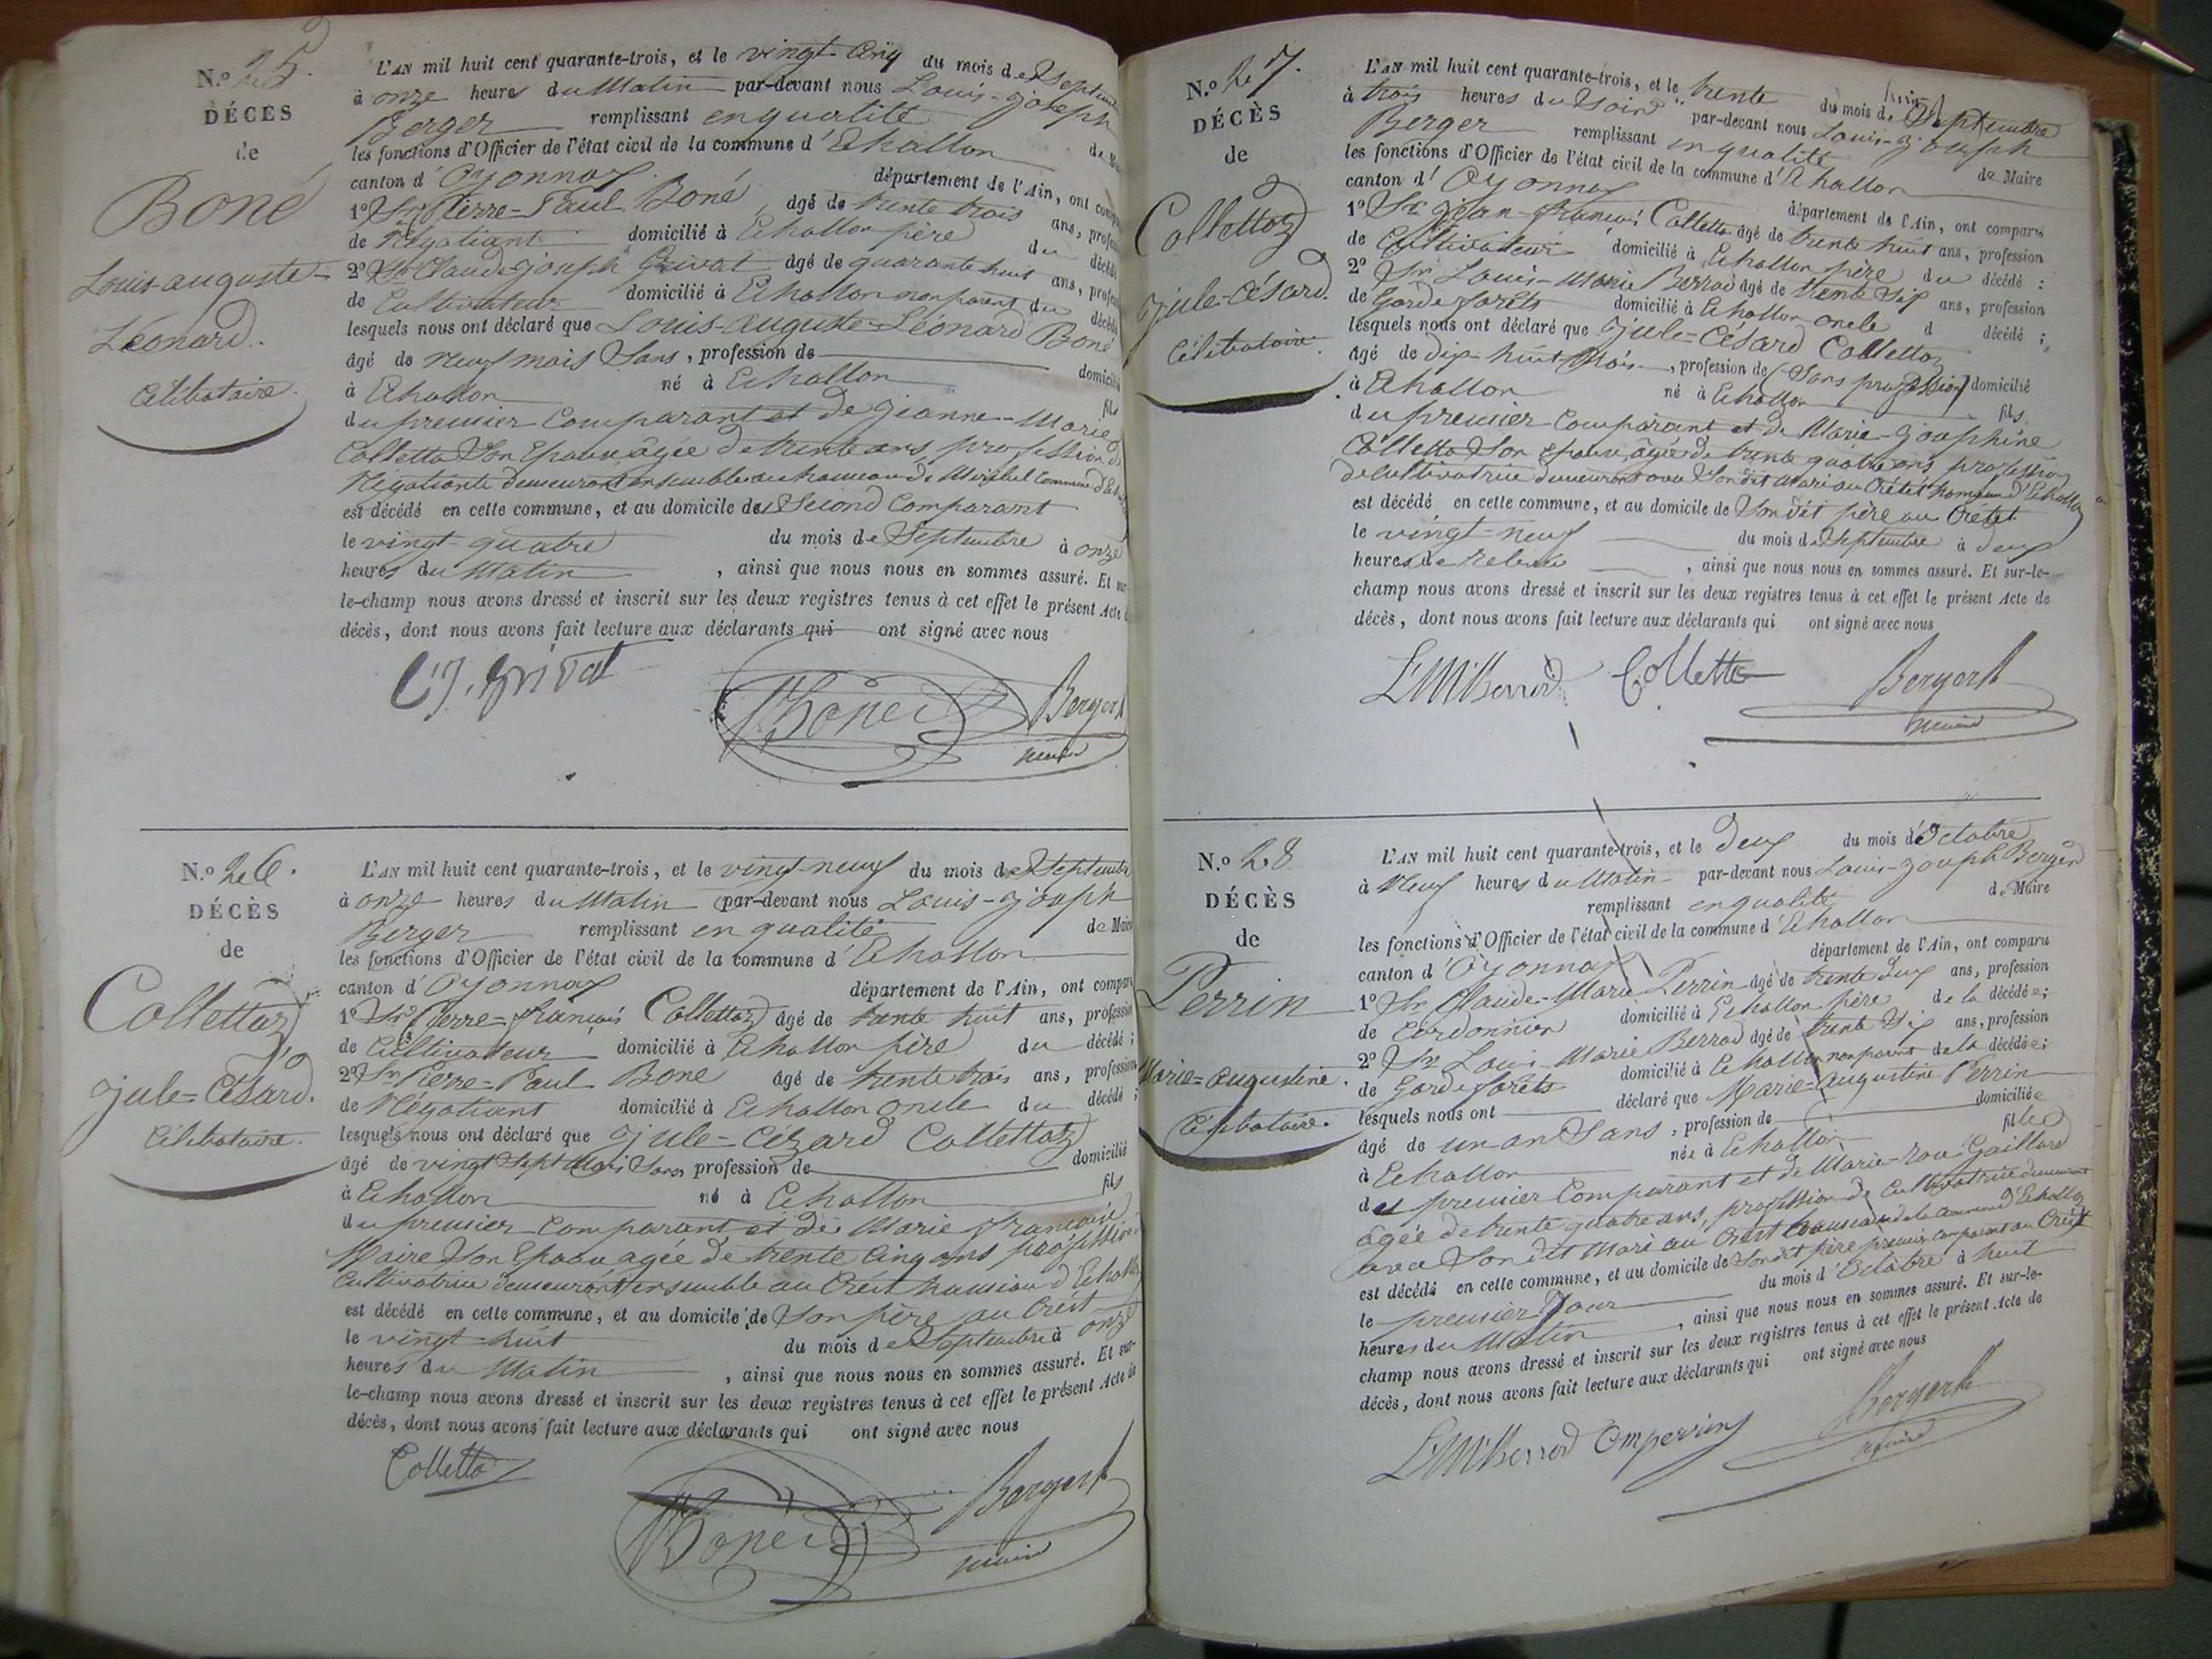 N.o 25.
DÉCÈS
de
Boné
Louis-auguste-
Léonard.
Célibataire.
L'AN mil huit cent quarante-trois, et le vingt-Cinq du mois de Septembre
à onze heures du Matin par-devant nous Louis-joseph
Berger remplissant en qualité de Maire
les fonctions d'Officier de l'état civil de la commune d'Echallon
canton d'Oyonnax département de l'Ain, ont comparu
1o Sr Pierre-Paul Boné, âgé de trente trois ans, profession
de Négotiant domicilié à Echallon père du décédé
2o Sr Claude-joseph Grivat âgé de quarante huit ans, profession
de Cultivateur domicilié à Echallon non parent du décédé
lesquels nous ont déclaré que Louis-auguste-Léonard Boné
âgé de Neuf mois Sans, profession de domicilié
à Echallon né à Echallon fils
du premier Comparant et de jeanne-Marie
Colletta Son Epouse âgée de trente ans, profession de
Négotiante demeurant ensemble au hameau de Mirebel Commune
est décédé en cette commune, et au domicile du Second Comparant
le vingt-quatre du mois de Septembre à onze
heures du Matin, ainsi que nous nous en sommes assuré. Et sur
le-champ nous avons dressé et inscrit sur les deux registres tenus à cet effet le présent Acte de
décès, dont nous avons fait lecture aux déclarants qui ont signé avec nous
C.J. Grivat Boné Berger
maire
N.o 26.
DÉCÈS
de
Collettaz
jule-César.
Célibataire.
L'AN mil huit cent quarante-trois, et le vingt-neuf du mois de Septembre
à onze heures du Matin par-devant nous Louis-joseph
Berger remplissant en qualité de Maire
les fonctions d'Officier de l'état civil de la commune d'Echallon
canton d'Oyonnax département de l'Ain, ont comparu
1o Sr Pierre-françois Collettaz âgé de trente huit ans, profession
de Cultivateur domicilié à Echallon père du décédé;
2o Sr Pierre-Paul Boné âgé de trente trois ans, profession
de Négotiant domicilié à Echallon oncle du décédé;
lesquels nous ont déclaré que jule-Cézard Collettaz
âgé de vingt Sept Mois Sans profession de domicilié
à Echallon né à Echallon fils
du premier Comparant et de Marie françoise
Maire Son Epouse agée de trente Cinq ans profession
Cultivatrice demeurant ensemble au Crêt hameau d'Echallon
est décédé en cette commune, et au domicile de Son père au Crêt
le vingt-huit du mois de Septembre à onze
heures du Matin, ainsi que nous nous en sommes assuré. Et sur-
le-champ nous avons dressé et inscrit sur les deux registres tenus à cet effet le présent Acte de
décès, dont nous avons fait lecture aux déclarants qui ont signé avec nous
Colletta Boné Berger
maire
N.o 27.
DÉCÈS
de
Collettaz
jule-Césard.
Célibataire.
L'AN mil huit cent quarante-trois, et le trente du mois de Septembre
à trois heures du Soir par-devant nous Louis-joseph
Berger remplissant en qualité de Maire
les fonctions d'Officier de l'état civil de la commune d'Echallon
canton d'Oyonnax département de l'Ain, ont comparu
1o Sr jean-françois Colletta âgé de trente huit ans, profession
de Cultivateur domicilié à Echallon père du décédé;
2o Sr Louis-Marie Berrod âgé de trente Six ans, profession
de Garde forêts domicilié à Echallon oncle d décédé;
lesquels nous ont déclaré que jule-Césard Collettaz
âgé de dix-huit Mois, profession de (Sans profession) domicilié
à Echallon né à Echallon fils
du premier Comparant et de Marie-josephine
Colletta Son épouse, âgée de trente quatre ans, profession
de Cultivatrice demeurant avec Son dit Mari au Crétet hameau d'Echallon
est décédé en cette commune, et au domicile de Son dit père au Crétet
le vingt-neuf du mois de Septembre à deux
heures de Relevée, ainsi que nous nous en sommes assuré. Et sur-le-
champ nous avons dressé et inscrit sur les deux registres tenus à cet effet le présent Acte de
décès, dont nous avons fait lecture aux déclarants qui ont signé avec nous
LMBerrod Colletta Berger
maire
N.o 28
DÉCÈS
de
Perrin
Marie-augustine.
Célibataire.
L'AN mil huit cent quarante-trois, et le deux du mois d'Octobre
à Neuf heures du Matin par-devant nous Louis-joseph Berger
remplissant en qualité de Maire
les fonctions d'Officier de l'état civil de la commune d'Echallon
canton d'Oyonnax département de l'Ain, ont comparu
1o Sr Claude-Marie Perrin âgé de trente deux ans, profession
de Cordonnier domicilié à Echallon père de la décédée;
2o Sr Louis-Marie Berrod âgé de trente Six ans, profession
de Garde forêts domicilié à Echallon non parent de la décédée;
lesquels nous ont déclaré que Marie-augustine Perrin
âgé de un an Sans, profession de domiciliée
à Echallon née à Echallon fille
du premier Comparant et de Marie-Rose Gaillard
agée de trente quatre ans, profession de Cultivatrice demeurant
avec Son dit Mari au Crêt hameau de la Commune d'Echallon
est décédé en cette commune, et au domicile de Son dit père premier comparant au Crêt
le premier Jour du mois d'Octobre à huit
heures du Matin, ainsi que nous nous en sommes assuré. Et sur-le-
champ nous avons dressé et inscrit sur les deux registres tenus à cet effet le présent Acte de
décès, dont nous avons fait lecture aux déclarants qui ont signé avec nous
LMBerrod Cmperrin Berger
maire